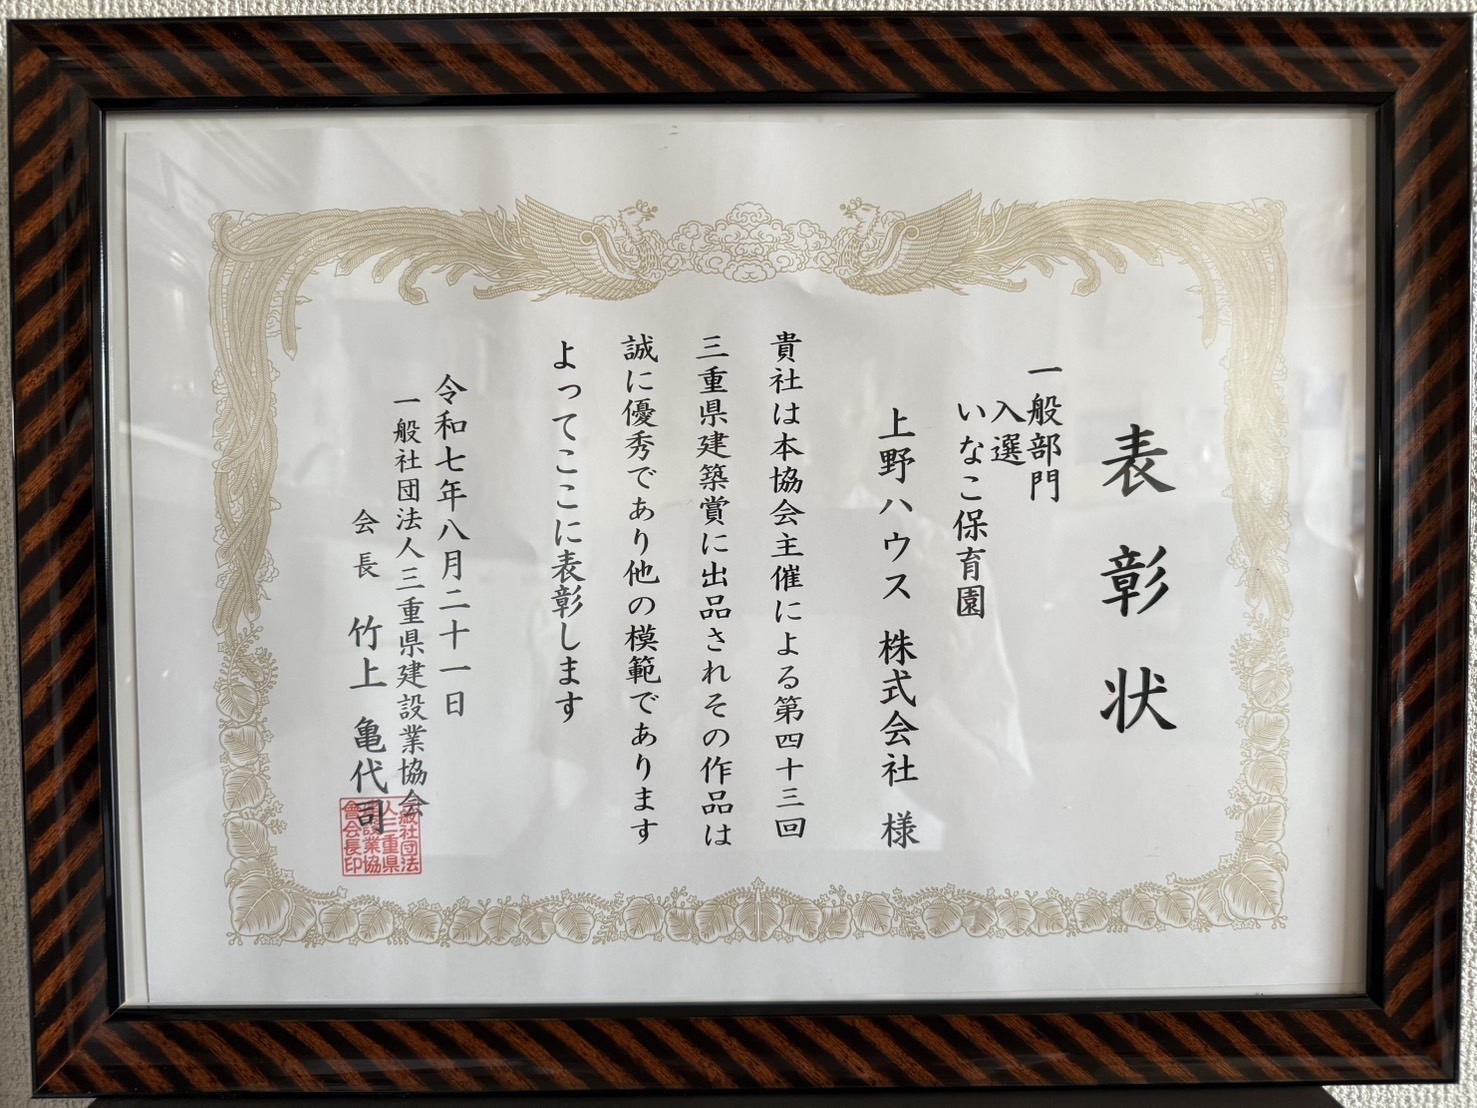 表彰状
一般部門
入選
いなこ保育園
上野ハウス 株式会社 様
貴社は本協会主催による第四十三回
三重県建築賞に出品されその作品は
誠に優秀であり他の模範であります
よってここに表彰します
令和七年八月二十一日
一般社団法人三重県建設業協会
会長 竹上 亀代司
一般社団法
人三重県
建設業協
會会長印